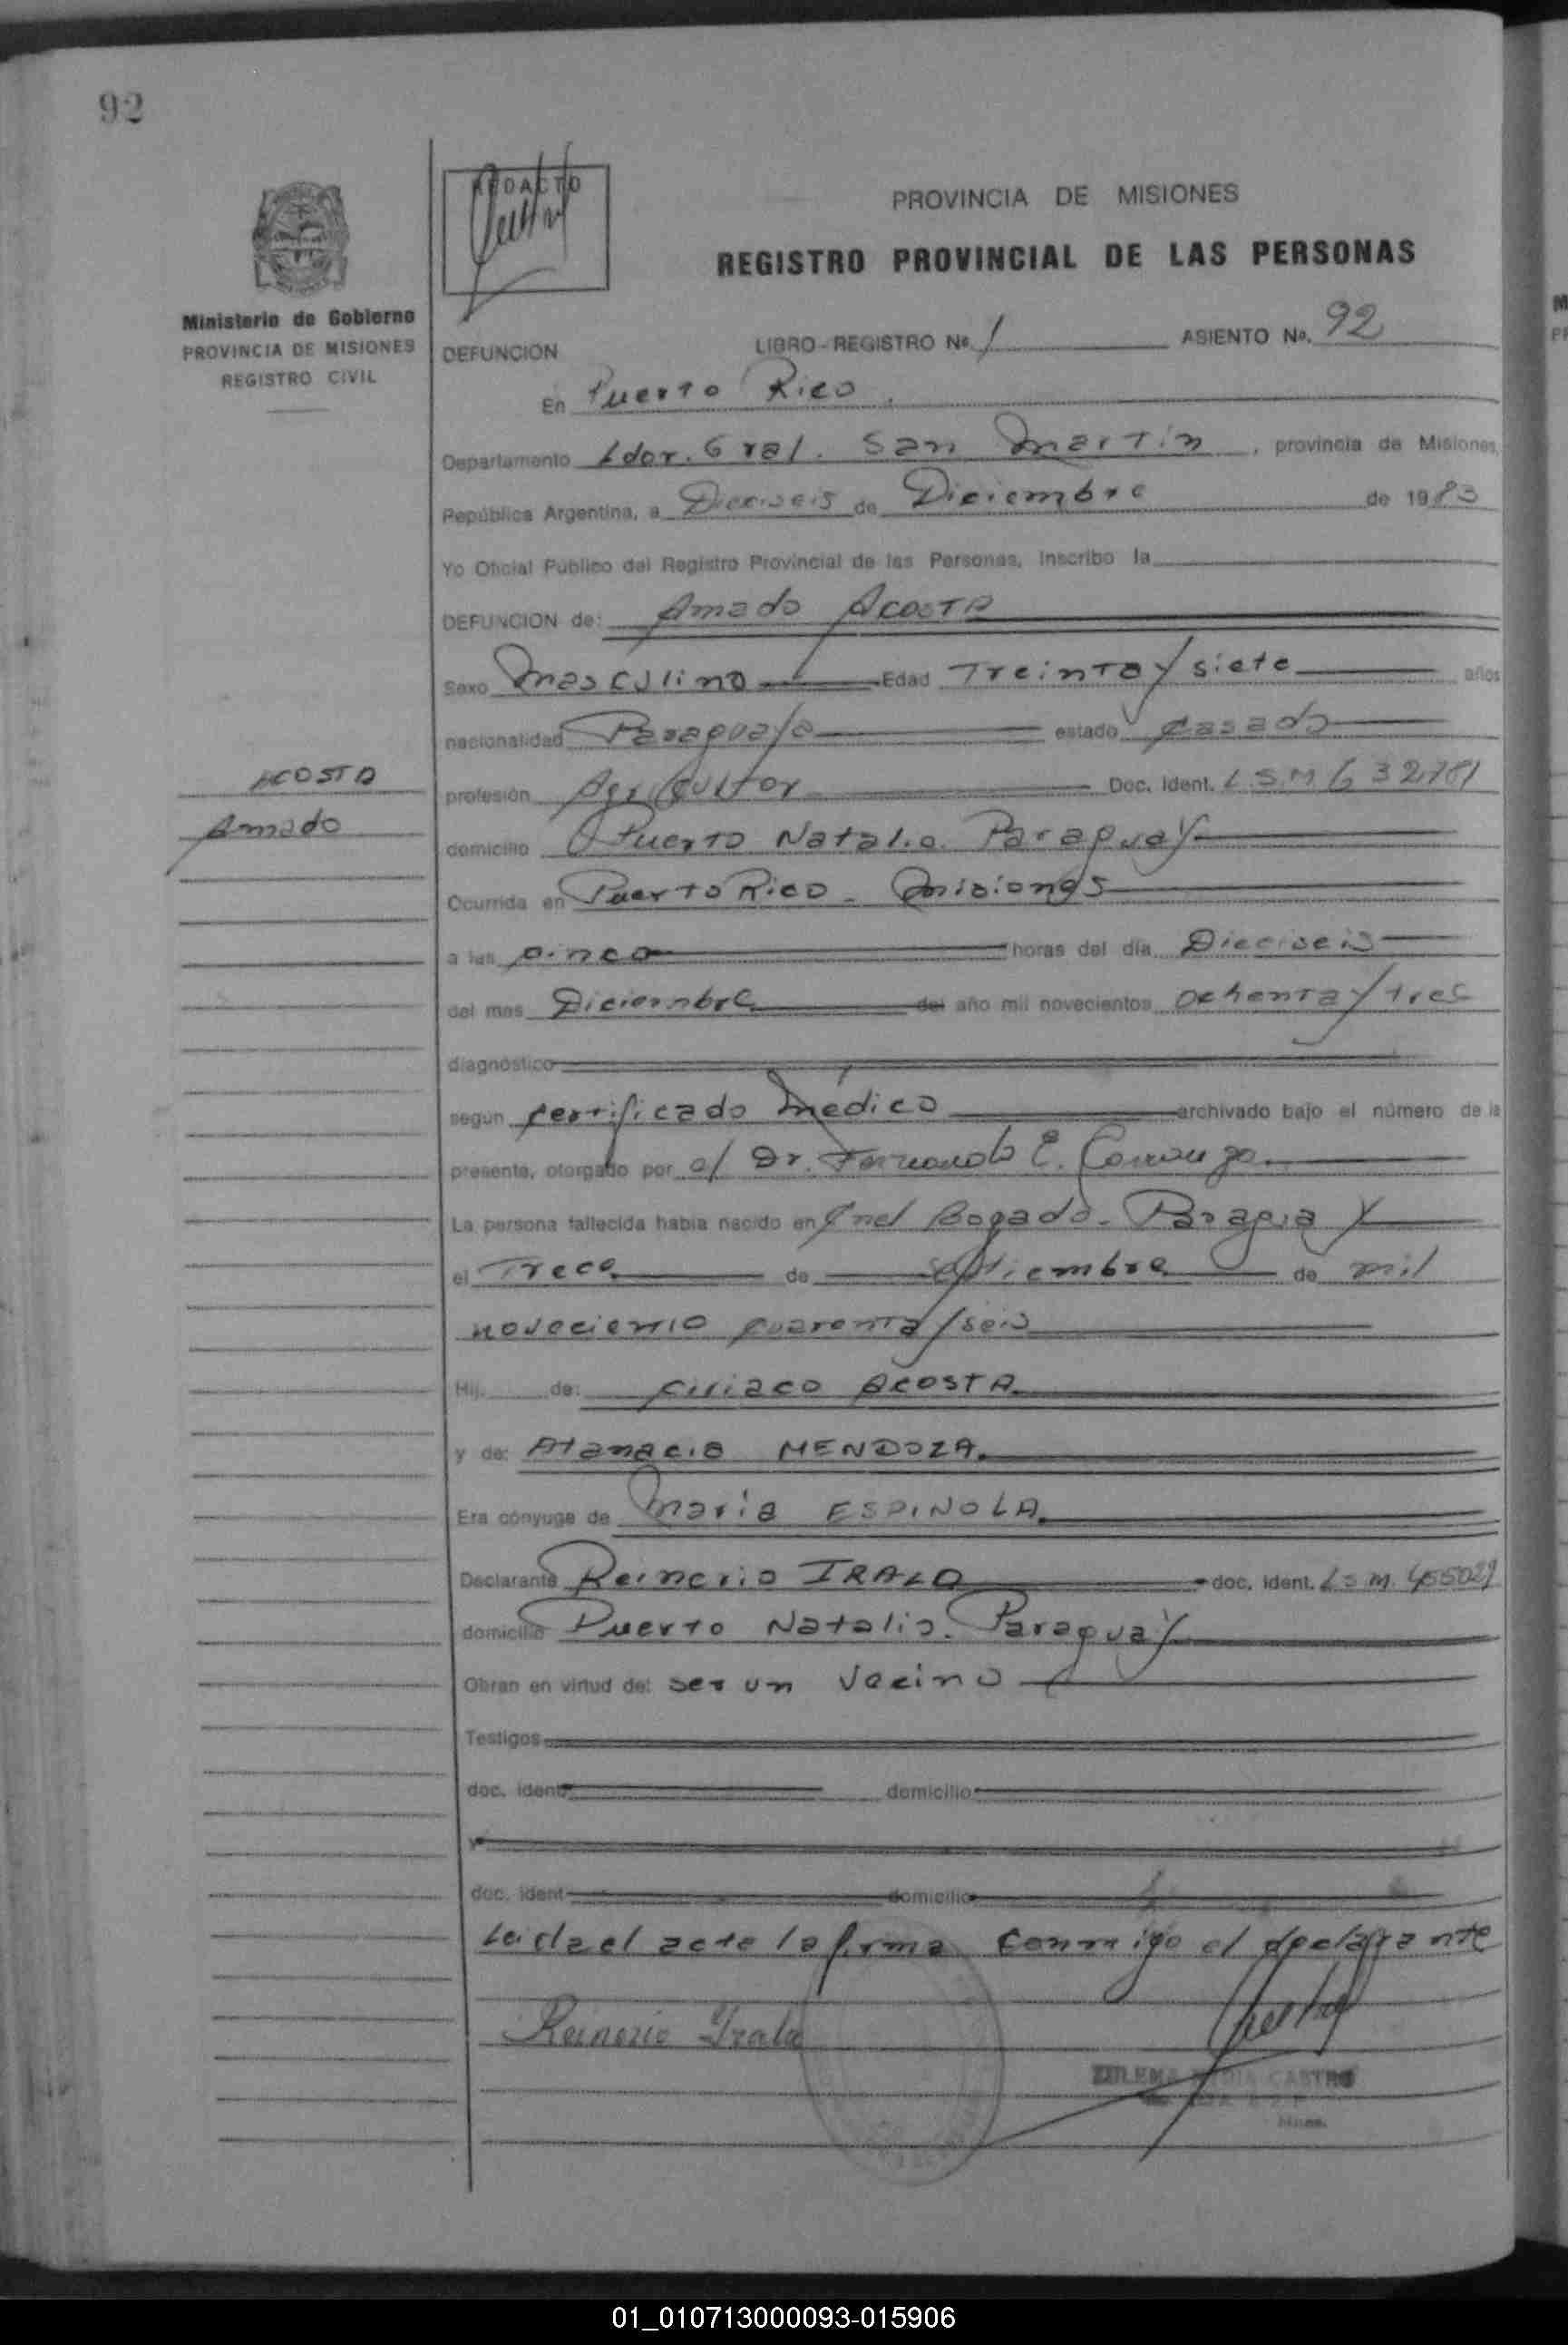 92
REDACTO
PROVINCIA DE MISIONES
REGISTRO PROVINCIAL DE LAS PERSONAS
Ministerio de Gobierno
PROVINCIA DE MISIONES
REGISTRO CIVIL
DEFUNCION LIBRO-REGISTRO No. 1 ASIENTO No. 92
En Puerto Rico.
Departamento Ldor. Gral. San Martín, provincia de Misiones,
República Argentina, a Dieciseis de Diciembre de 1983
Yo Oficial Público del Registro Provincial de las Personas, Inscribo la
DEFUNCION de: Amado ACOSTA
Sexo Masculino Edad Treinta y siete años
nacionalidad Paraguayo estado Casado
ACOSTA
Amado
profesión Agricultor Doc. Ident. L.S.M 632781
domicilio Puerto Natalio. Paraguay
Ocurrida en Puerto Rico - Misiones
a las cinco horas del día Dieciseis
del mes Diciembre del año mil novecientos ochenta y tres
diagnóstico
según certificado Médico archivado bajo el número de la
presente, otorgado por el Dr. Fernando E.
La persona fallecida había nacido en Cnel Bogado. Paraguay
el Trece de Septiembre de mil
noveciento cuarenta y seis
Hij de: Ciriaco ACOSTA.
y de: Atanacia MENDOZA.
Era cónyuge de María ESPINOLA.
Declarante Reinerio IRALA doc. ident. L S M. 455021
domicilio Puerto Natalio. Paraguay
Obran en virtud de: ser un vecino
Testigos
doc. ident. domicilio
y
doc. ident. domicilio
Leida el acta la firma conmigo el declarante
Reinerio Irala
CASTRO
01_010713000093-015906